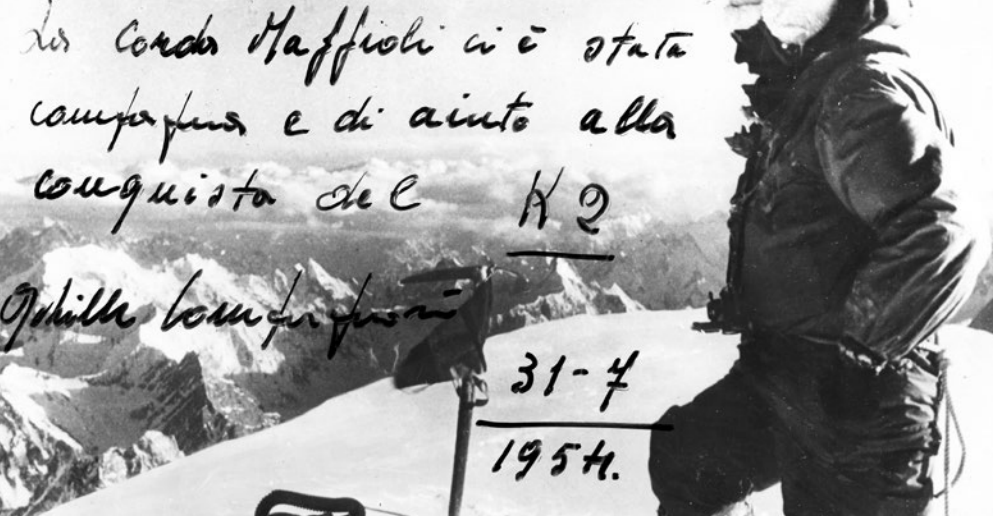 La Corda Maffioli ci è stata
compagna e di aiuto alla
conquista del K2
Achille Compagnoni
31-7
1954.